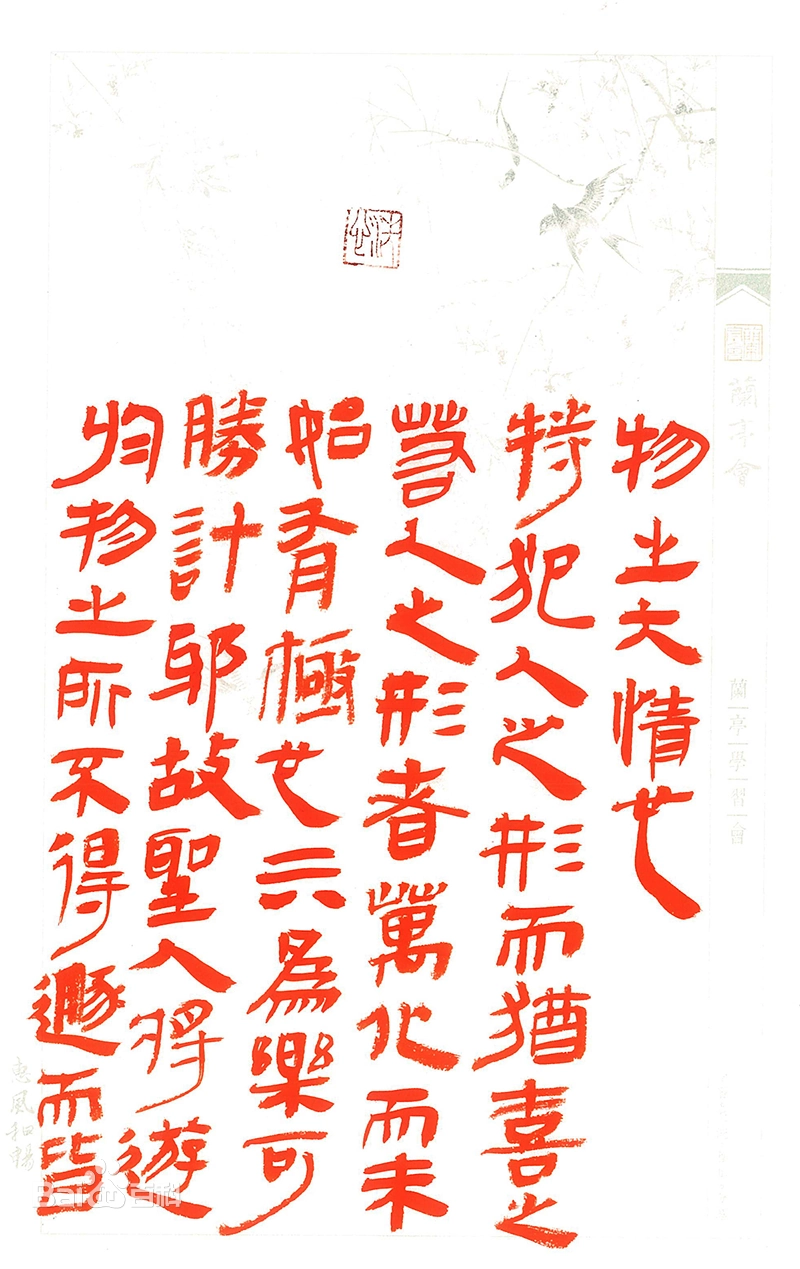 蘭亭會
蘭亭學習會
物之大情也
特犯人之形而猶喜之
若人之形者萬化而未
始有極也亓為樂可
勝計邪故聖人將遊
於物之所不得遯而皆
惠風和暢
Bai百科